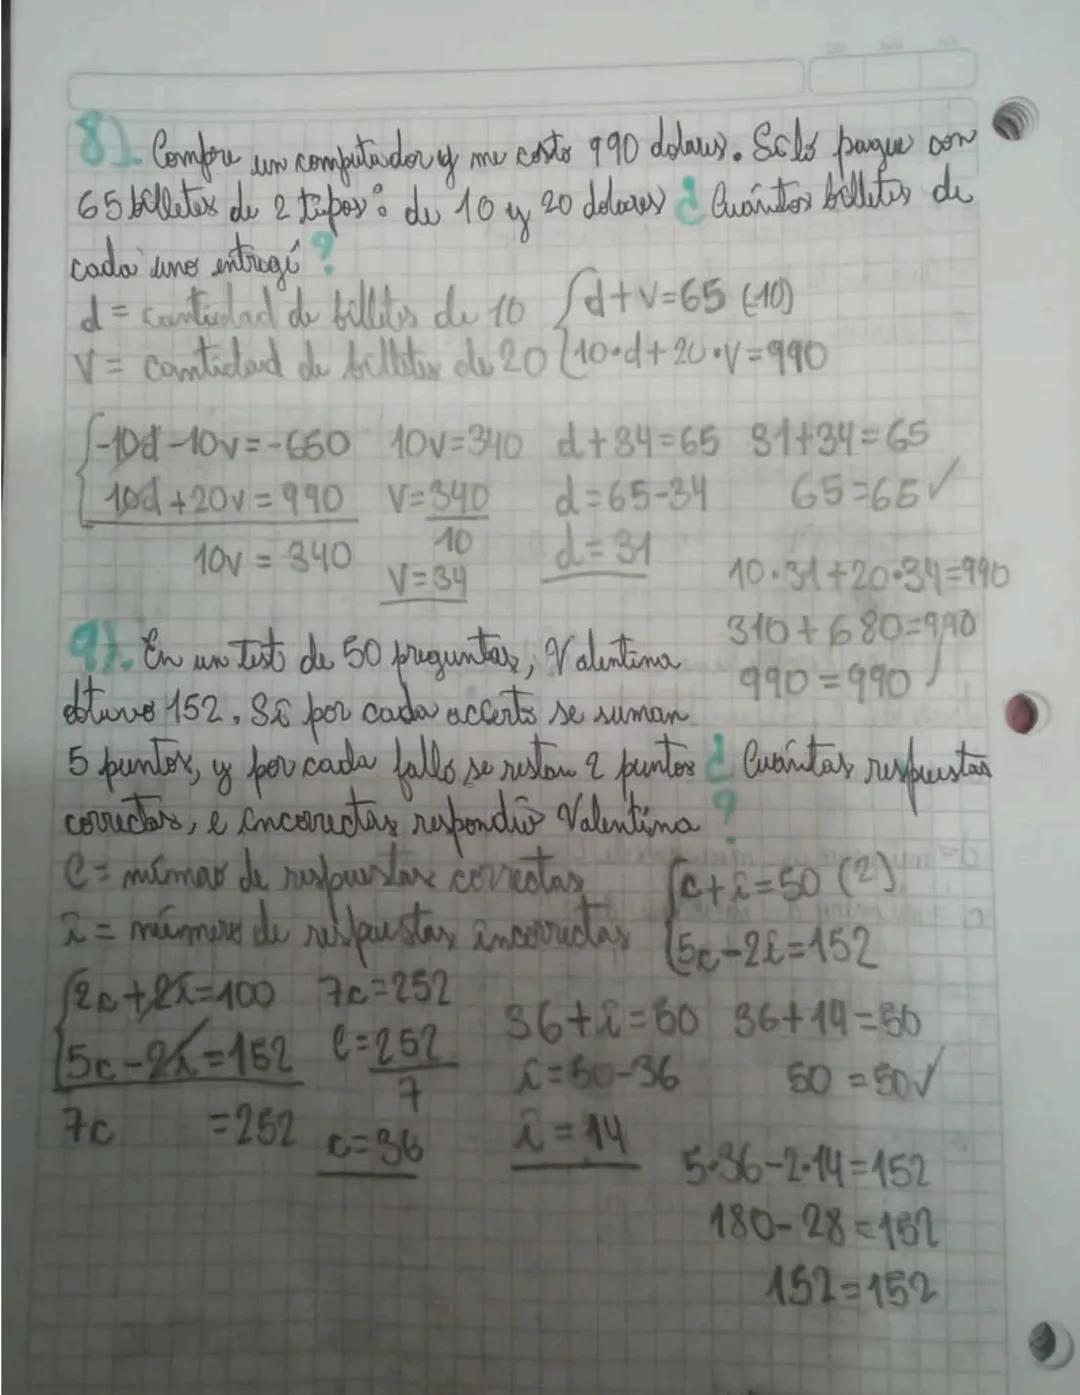 8). Compre un computador y me costo 990 dolares. Solo pague con
65 billetes de 2 tipos: de 10 y 20 dolares ¿Cuántos billetes de
cada uno entregé?
d = cantidad de billetes de 10
V = cantidad de billetes de 20
{d+v=65 (-10)
10·d+20·v=990
{-10d-10v=-650
10d+20v=990
10v=340
10v=340
v=340
10
v=34
d+34=65
d=65-34
d=31
31+34=65
65=65✓
10·31+20·34=990
310+680=990
990=990✓
9). En un test de 50 preguntas, Valentina
obtuvo 152. Si por cada acierto se suman
5 puntos, y por cada fallo se restan 2 puntos ¿Cuántas respuestas
correctas, e incorrectas respondió Valentina?
C = número de respuestas correctas
i = número de respuestas incorrectas
{c+i=50 (2)
5c-2i=152
{2c+2i=100
5c-2i=152
7c =252
7c=252
c=252
7
c=36
36+i=50
i=50-36
i=14
36+14=50
50=50✓
5·36-2·14=152
180-28=152
152=152